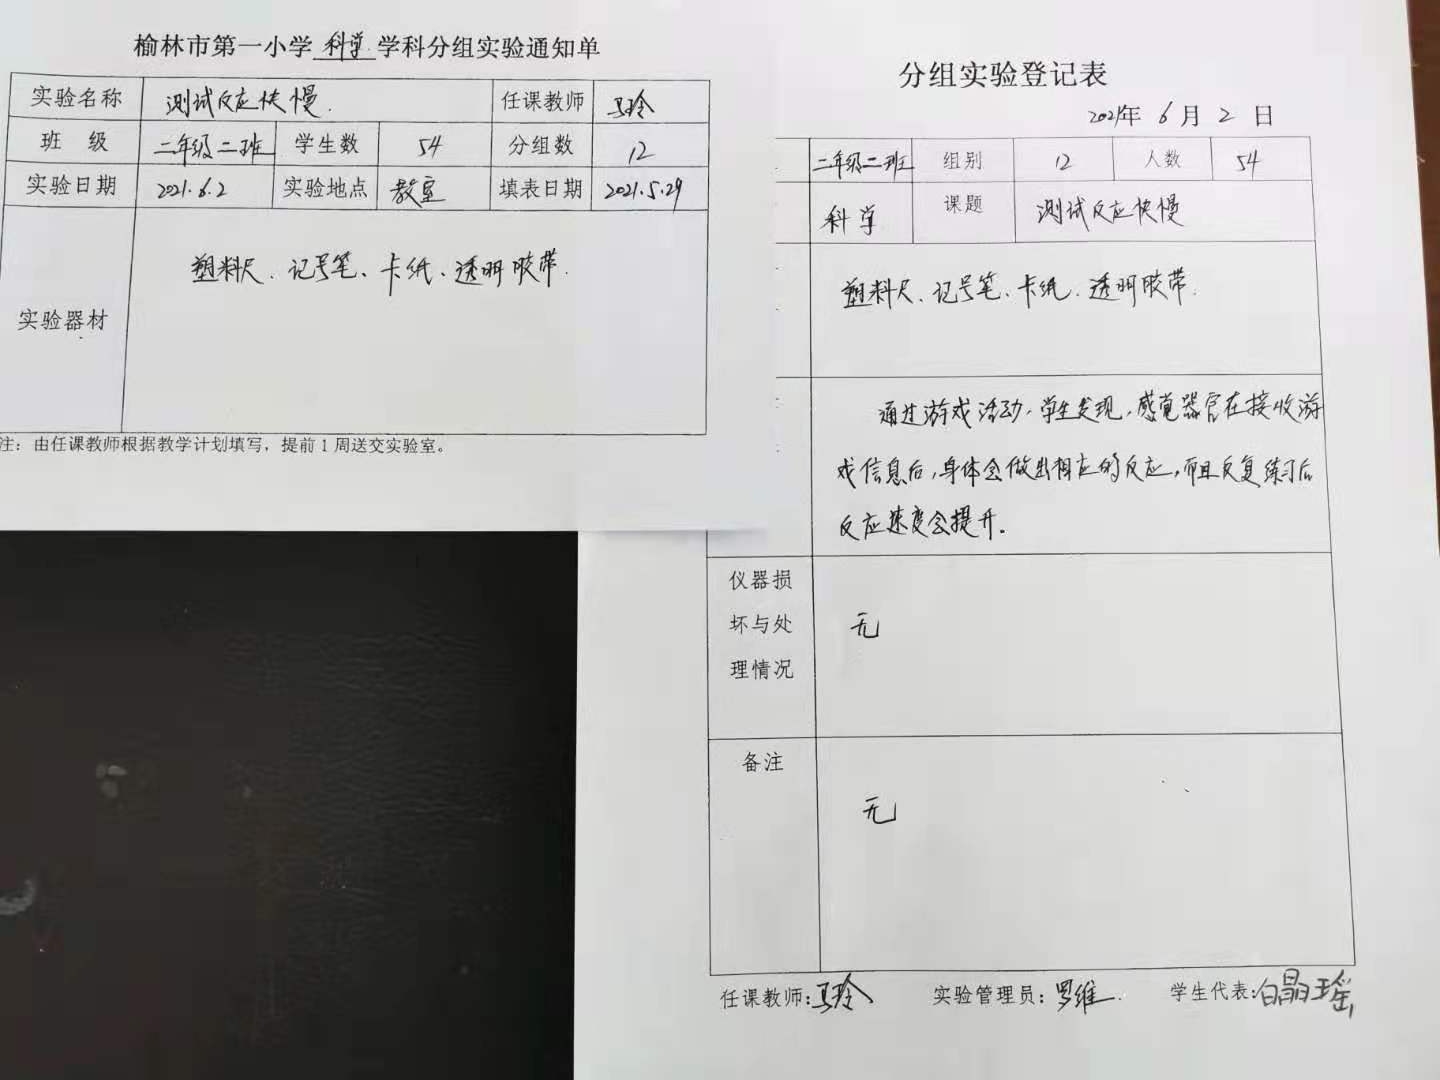 榆林市第一小学 科学 学科分组实验通知单
实验名称 测试反应快慢. 任课教师 马玲
班 级 二年级二班 学生数 54 分组数 12
实验日期 2021.6.2 实验地点 教室 填表日期 2021.5.29
实验器材 塑料尺、记号笔、卡纸、透明胶带.
注：由任课教师根据教学计划填写，提前1周送交实验室。
分组实验登记表
2021年 6 月 2 日
二年级二班 组别 12 人数 54
科学 课题 测试反应快慢
塑料尺、记号笔、卡纸、透明胶带.
通过游戏活动，学生发现，感觉器官在接收游
戏信息后，身体会做出相应的反应，而且反复练习后
反应速度会提升。
仪器损
坏与处
理情况
无
备注
无
任课教师：马玲 实验管理员：罗维 学生代表：白晶瑶